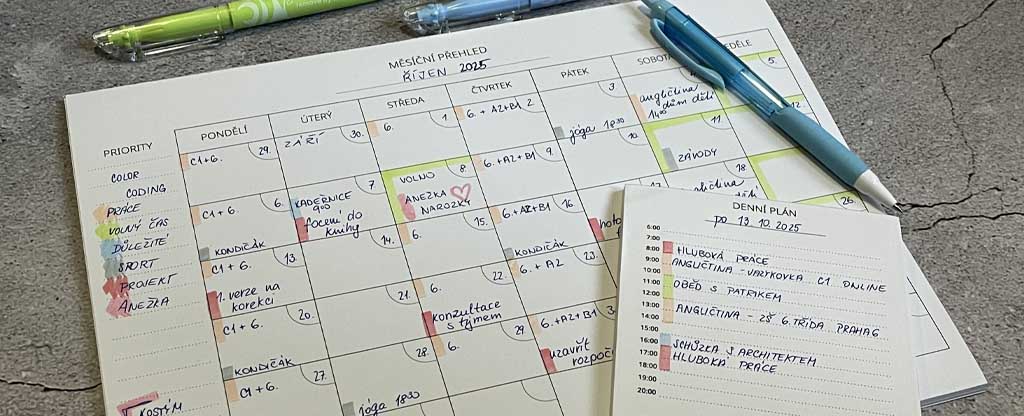 MĚSÍČNÍ PŘEHLED
ŘÍJEN 2025
PRIORITY
COLOR
CODING
PRÁCE
VOLNÝ ČAS
DŮLEŽITÉ
SPORT
PROJEKT
ANEŽKA
KOSTÝM
PONDĚLÍ
ÚTERÝ
STŘEDA
ČTVRTEK
PÁTEK
SOBOTA
DĚLE
C1+6. 29.
ZÁŘÍ 30.
6. 1.
6. + A2+B1 2.
jóga 18:30 3.
angličtina
14:00 dům dětí
5.
C1+6. 6.
KONDIČÁK
KADEŘNICE 7.
9:00
focení do
knihy
VOLNO 8.
ANEŽKA
NAROZKY
6. + A2+B1 9.
10.
ZÁVODY 11.
12.
C1+6. 13.
1. verze na
korekci
14.
6. 15.
6. + A2+B1 16.
KONDIČÁK
17.
18.
dětí
C1+6. 20.
KONDIČÁK
21.
6. 22.
konzultace
s týmem
6. + A2 23.
26.
C1+6. 27.
28.
jóga 18:30
6. 29.
6. + A2+B1
uzavřít
DENNÍ PLÁN
po 13. 10. 2025
6:00
7:00
8:00 HLUBOKÁ PRÁCE
9:00 ANGLIČTINA - VÝUKOVKA C1 ONLINE
10:00
11:00 OBĚD S PATRIKEM
12:00
13:00 ANGLIČTINA - ZŠ 6. TŘÍDA PRAHA 6
14:00
15:00
16:00 SCHŮZKA S ARCHITEKTEM
17:00 HLUBOKÁ PRÁCE
18:00
19:00
20:00